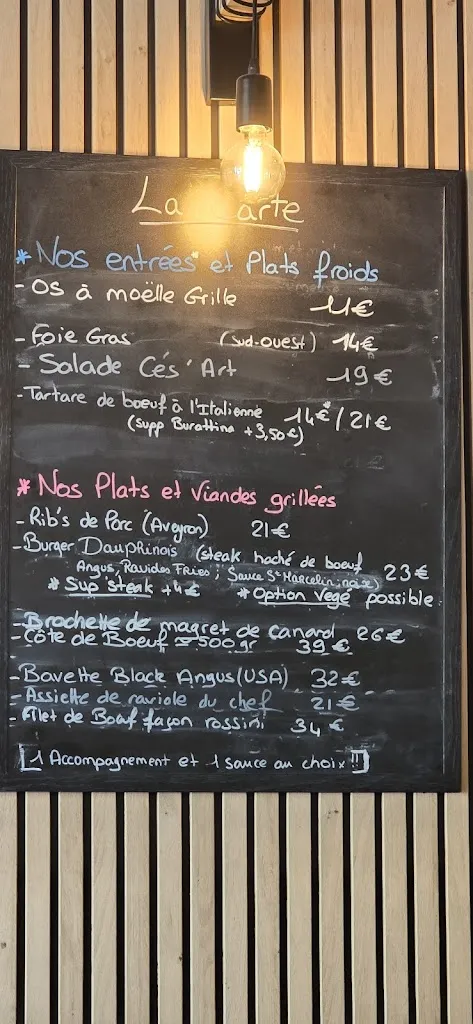 La Carte
* Nos entrées et Plats froids
- Os à moëlle Grille 11€
- Foie Gras (Sud-ouest) 14€
- Salade Cés'Art 19€
- Tartare de boeuf à l'Italienne 14€ / 21€
(supp Burattina + 3,50€)
* Nos Plats et Viandes grillées
- Rib's de Porc (Aveyron) 21€
- Burger Dauphinois (steak haché de boeuf 23€
Angus, Ravides Fries ; Sauce St Marcelin, noix)
* Sup steak +4€ * Option végé possible
- Brochette de magret de canard 26€
- Côte de Boeuf ≈ 500gr 39€
- Bavette Black Angus (USA) 32€
- Assiette de raviole du chef 21€
- Filet de Boeuf façon rossini 34€
[1 Accompagnement et 1 sauce au choix !!]